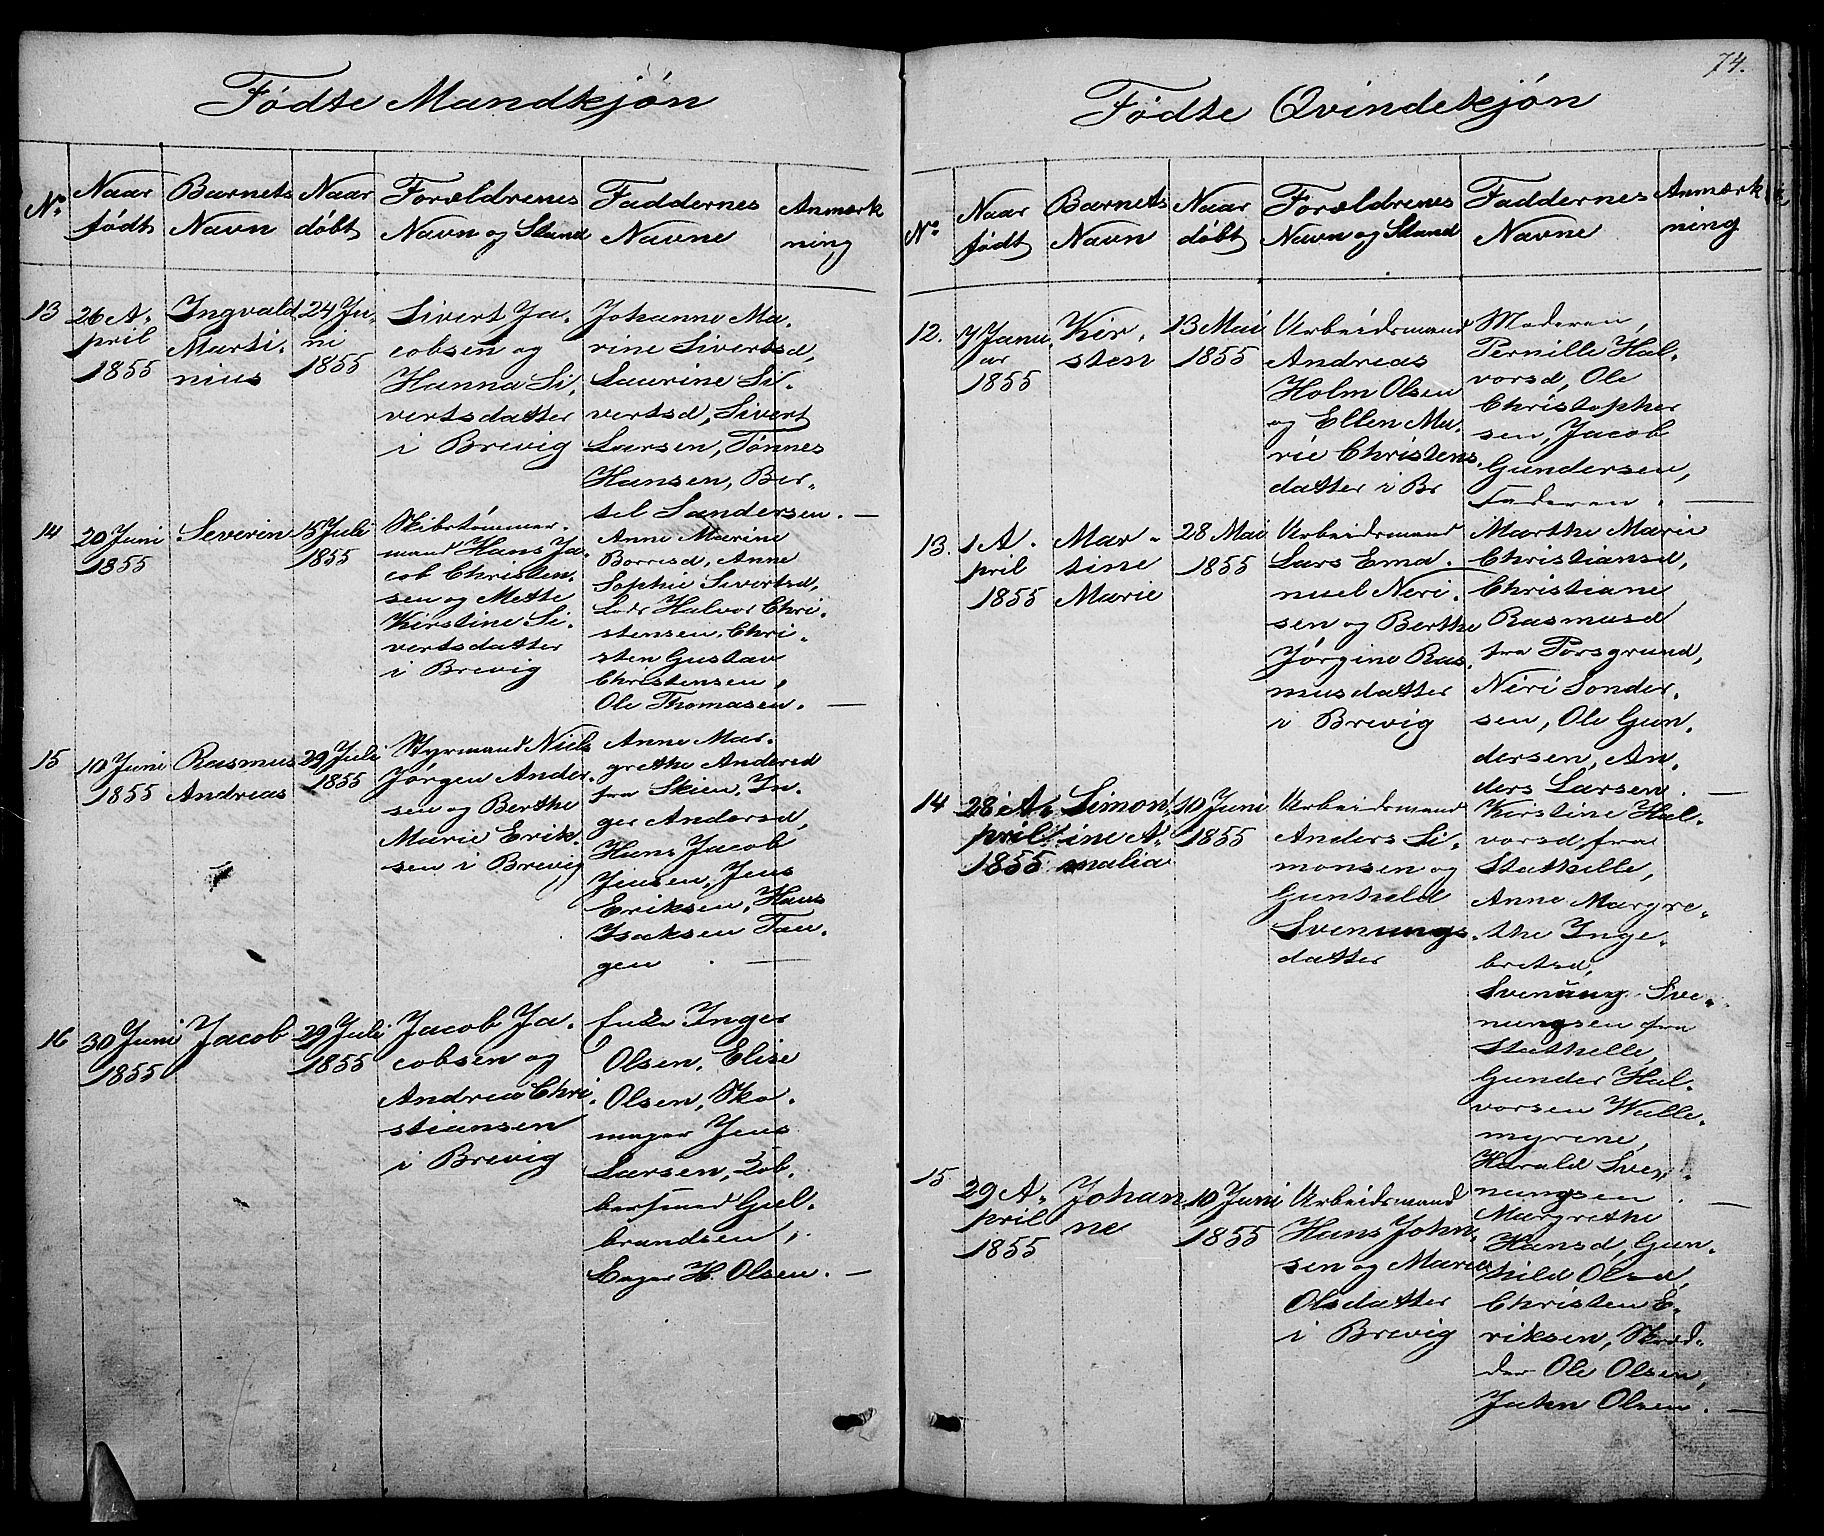 Fødte Mandkjøn
No
Naar født
Barnets Navn
Naar døbt
Forældrenes Navn og Stand
Faddernes Navne
Anmærkning
13
26 A-
pril
1855
Ingvald
Marti-
nius
24 Ju-
ni
1855
Sivert Ja-
cobsen og
Hanna Si-
vertsdatter
i Brevig
Johanne Ma-
rine Sivertsd,
Laurine Si-
vertsd, Sivert
Larsen, Tønnes
Hansen, Ber-
tel Sandersen. —
14
20 Juni
1855
Severin
15 Juli
1855
Skibstømmer-
mand Hans Ja-
cob Christen-
sen og Mette
Kirstine Si-
vertsdatter
i Brevig
Anne Marine
Borresd, Anne
Sophie Sivertsd,
Lods Halvor Chri-
stensen, Chri-
sten Gustav
Christensen,
Ole Thomasen. —
15
10 Juni
1855
Rasmus
Andreas
29 Juli
1855
Styrmand Niels
Jørgen Ander-
sen og Berthe
Marie Erik-
sen i Brevig
Anne Mar-
grethe Andersd
fra Skien, In-
ger Andersd,
Hans Jacob
Jensen, Jens
Eriksen, Hans
Isaksen Tan-
gen . —
16
30 Juni
1855
Jacob
29 Juli
1855
Jacob Ja-
cobsen og
Andrea Chri-
stiansen
i Brevig
Enke Inger
Olsen, Elise
Olsen, Sko-
mager Jens
Larsen,
Gul-
brandsen,
Bager H. Olsen. —
74.
Fødte Qvindekjøn
No
Naar født
Barnets Navn
Naar døbt
Forældrenes Navn og Stand
Faddernes Navne
Anmærkning
12.
7 Janu-
ar
1855
Kir-
sten
13 Mai
1855
Arbeidsmand
Andreas
Holm Olsen
og Ellen Ma-
rie Christens-
datter i Br
Moderen,
Pernille Hal-
vorsd, Ole
Christopher
sen, Jacob
Gundersen,
Faderen. —
13.
1 A-
pril
1855
Mar-
tine
Marie
28 Mai
1855
Arbeidsmand
Lars Ema-
nuel Neri-
sen og Berthe
Jørgine Ras-
musdatter
i Brevig
Marthe Marie
Christiansd,
Christiane
Rasmusd
fra Porsgrund,
Neri Sonder-
sen, Ole Gun-
dersen, An-
ders Larsen. —
14
28 A-
pril
1855
Simon-
ine A-
malia
10 Juni
1855
Arbeidsmand
Anders Si-
monsen og
Gunhild
Svenungs-
datter
Kirstine Hal-
vorsd fra
Stathelle,
Anne Margre-
the Inge-
bretsd,
Svenung Sve-
nungsen fra
Stathelle,
Gunder Hal-
vorsen Walle-
myrene,
Harald Sve-
nungsen . —
15
29 A-
pril
1855
Johan-
ne
10 Juni
1855
Arbeidsmand
Hans John-
sen og Maren
Olsdatter
i Brevig
Margrethe
Hansd, Gun-
hild Olsd,
Christen E-
riksen, Skræd-
der Ole Olsen,
John Olsen. —